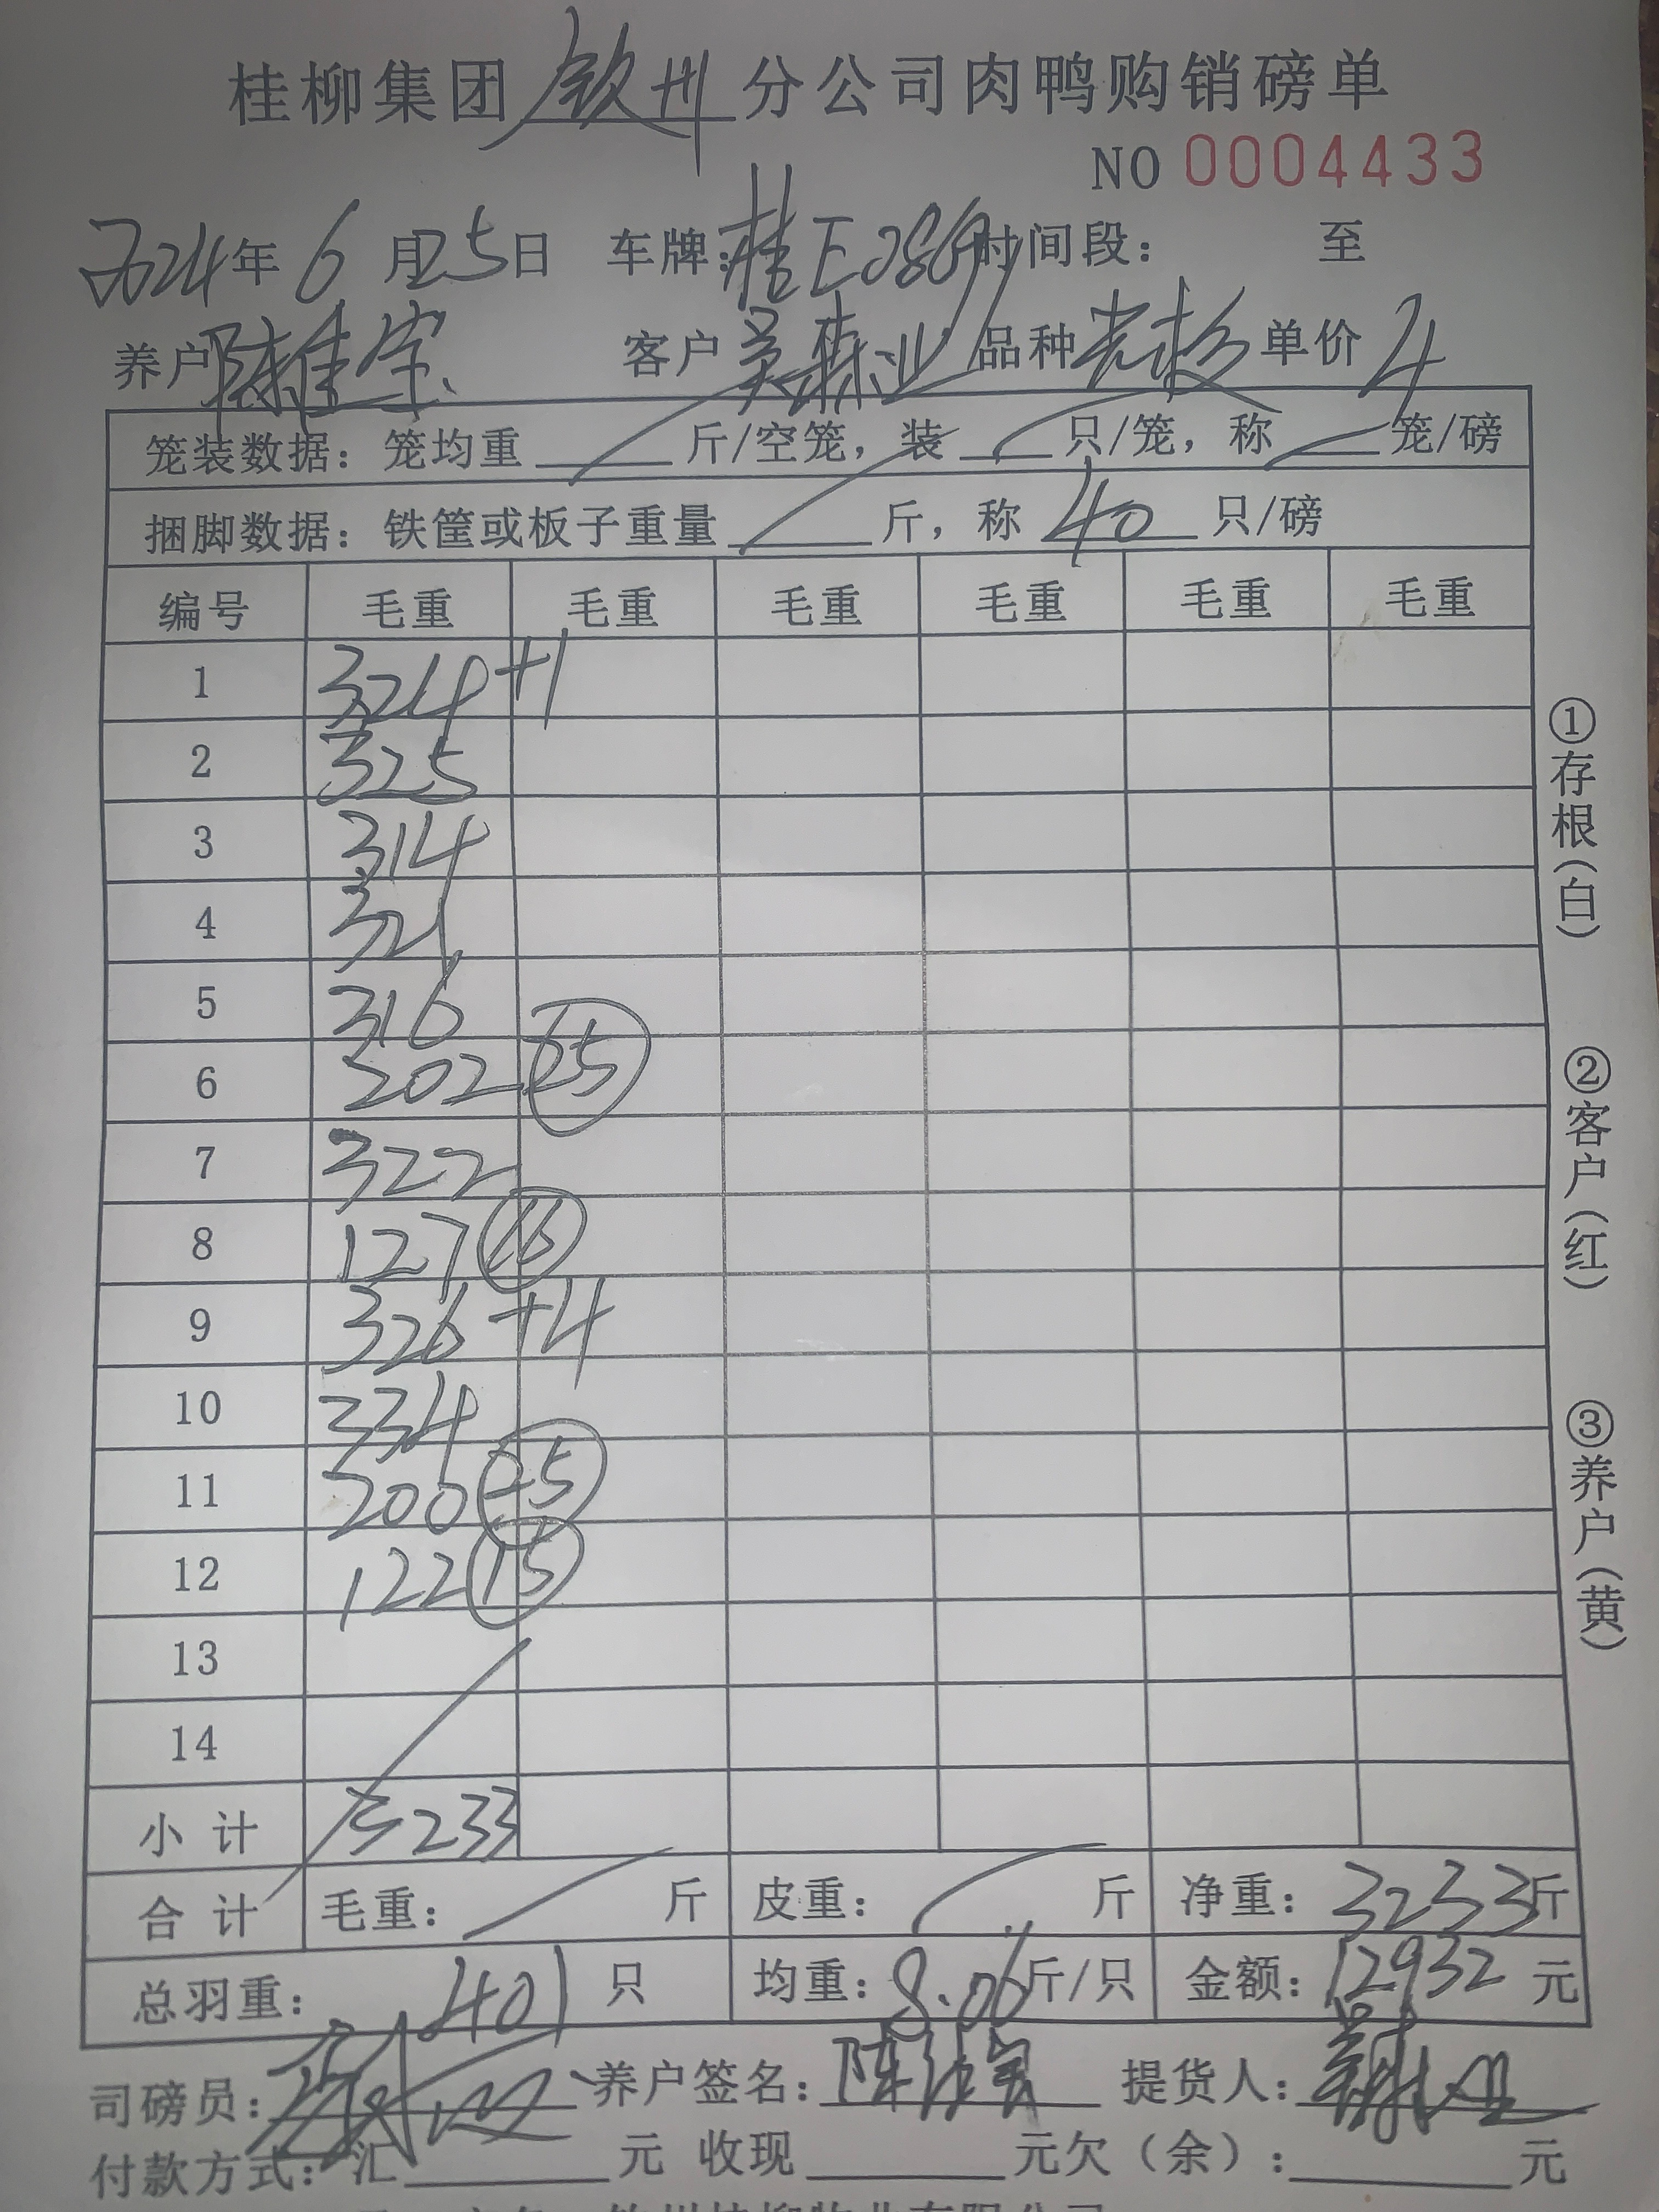 桂柳集团 钦州 分公司肉鸭购销磅单
NO 0004433
2024年 6 月25日 车牌:桂E 时间段: 至
养户 陈佳宝 客户 吴森业 品种 单价 4
笼装数据: 笼均重 斤/空笼, 装 只/笼, 称 笼/磅
捆脚数据: 铁筐或板子重量 斤, 称 40 只/磅
编号 毛重 毛重 毛重 毛重 毛重 毛重
1 324 +1
2 325
3 314
4 321
5 316
6 202 25
7 322
8 127
9 326 +4
10 334
11 200 25
12 122 15
13
14
小 计 3233
合 计 毛重: 斤 皮重: 斤 净重: 3233斤
总羽重: 401 只 均重: 8.06斤/只 金额: 12932 元
司磅员: 养户签名: 提货人:
付款方式: 汇 元 收现 元欠(余): 元
①存根(白)
②客户(红)
③养户(黄)